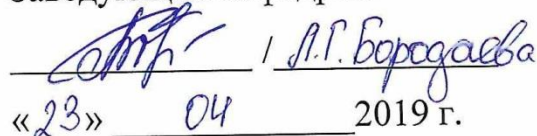 / Л.Г. Бородаева
«23» 04 2019 г.